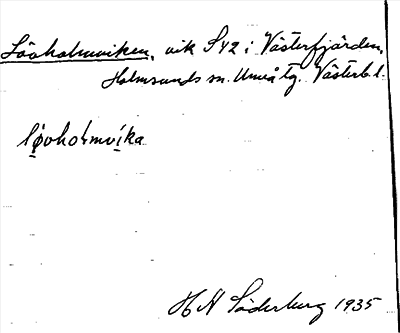 Lövholmviken, vik S42 i Västerfjärden,
Holmsunds sn. Umeå tg. Västerb. l.
lø̣voholmvịka
H H Söderburg 1935